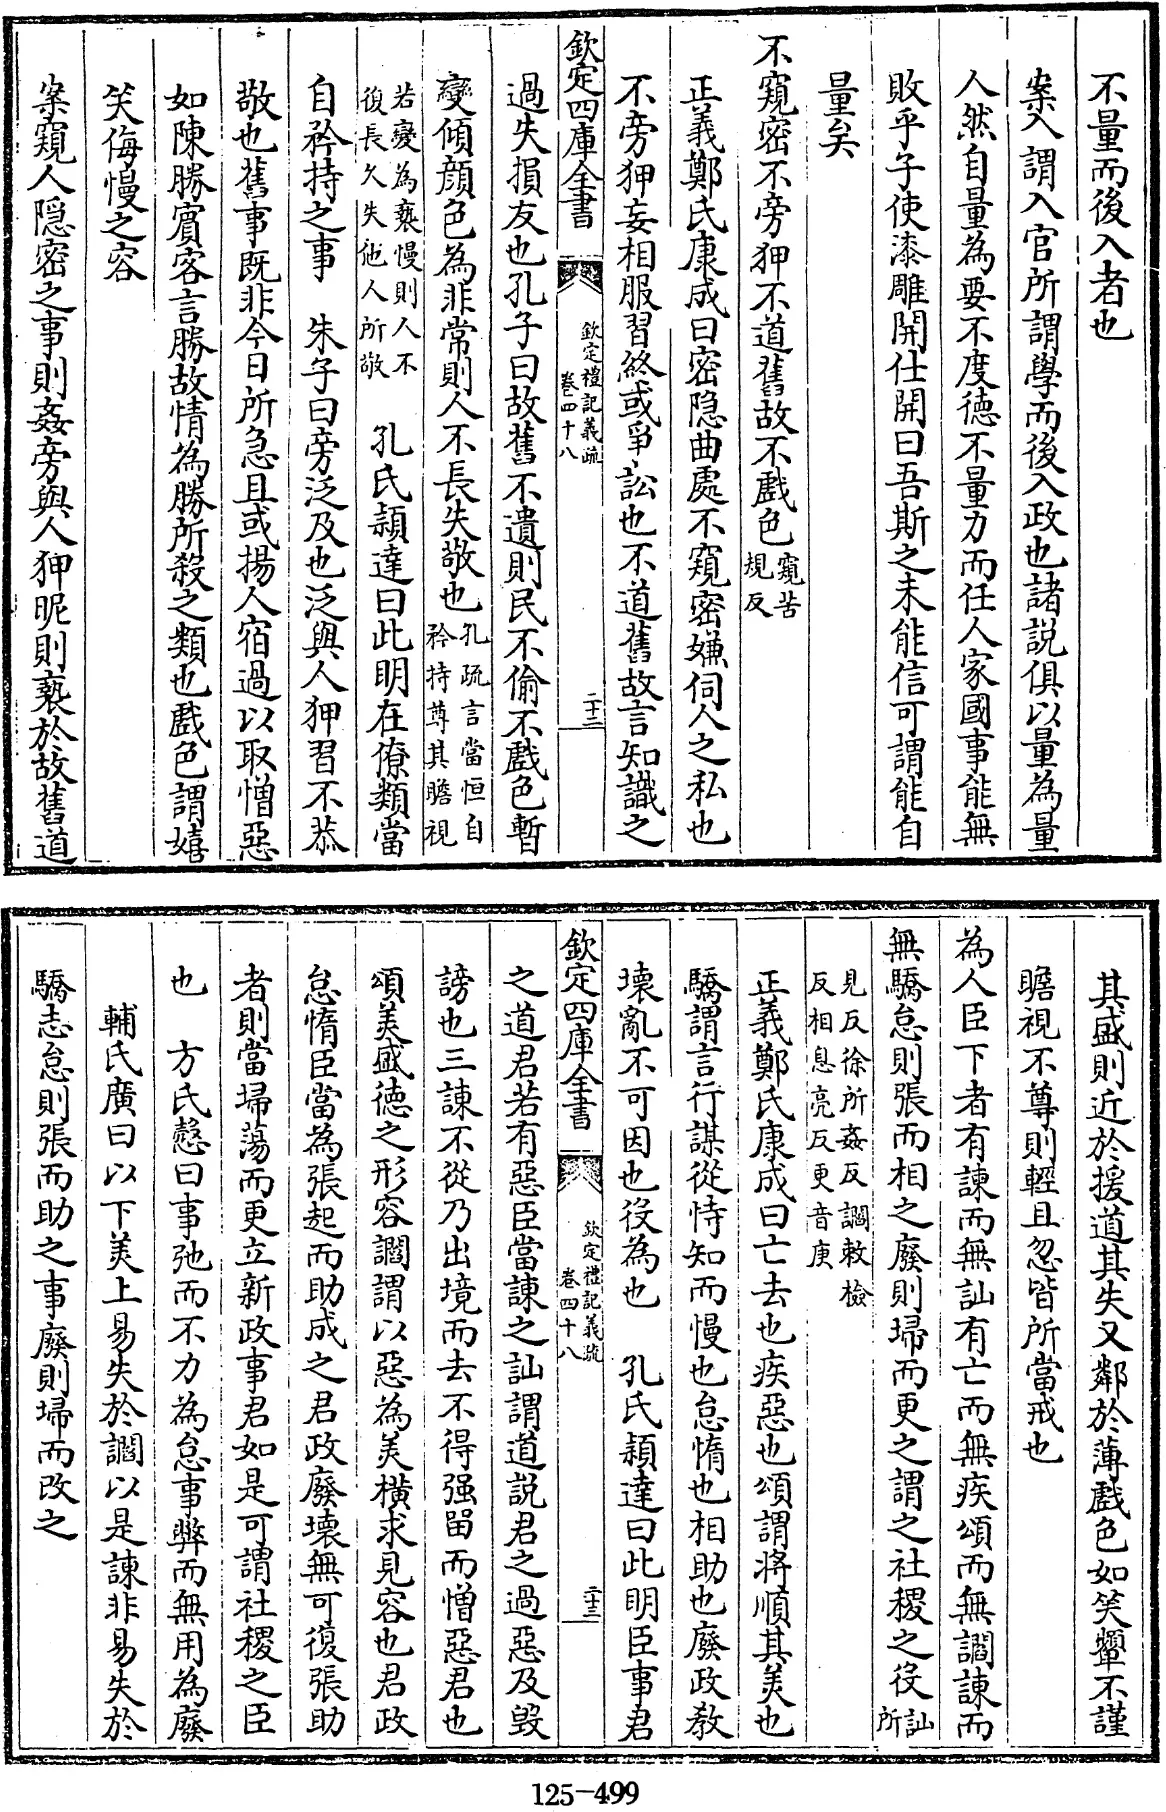 不量而後入者也
案入謂入官所謂學而後入政也諸説俱以量為量
人然自量為要不度德不量力而任人家國事能無
敗乎子使漆雕開仕開曰吾斯之未能信可謂能自
量矣
不窺密不旁狎不道舊故不戲色窺苦規反
正義鄭氏康成曰密隱曲處不窺密嫌伺人之私也
不旁狎妄相服習終或爭訟也不道舊故言知識之
欽定四庫全書 欽定禮記義疏 卷四十八 二十二
過失損友也孔子曰故舊不遺則民不偷不戲色暫
變傾顔色為非常則人不長失敬也孔疏言當恒自矜持尊其瞻視
若變為䙝慢則人不復長久失他人所敬 孔氏頴達曰此明在僚類當
自矜持之事 朱子曰旁泛及也泛與人狎習不恭
敬也舊事既非今日所急且或揚人宿過以取憎惡
如陳勝賓客言勝故情為勝所殺之類也戲色謂嬉
笑侮慢之容
案窺人隱密之事則姦旁與人狎昵則䙝於故舊道
其盛則近於援道其失又鄰於薄戲色如笑顰不謹
瞻視不尊則輕且忽皆所當戒也
為人臣下者有諫而無訕有亡而無疾頌而無讇諫而
無驕怠則張而相之廢則埽而更之謂之社稷之役訕所
見反徐所姦反讇敕檢反相息亮反更音庚
正義鄭氏康成曰亡去也疾惡也頌謂將順其美也
驕謂言行謀從恃知而慢也怠惰也相助也廢政教
壞亂不可因也役為也 孔氏頴達曰此明臣事君
欽定四庫全書 欽定禮記義疏 卷四十八 二十三
之道君若有惡臣當諫之訕謂道説君之過惡及毁
謗也三諫不從乃出境而去不得强留而憎惡君也
頌美盛德之形容讇謂以惡為美橫求見容也君政
怠惰臣當為張起而助成之君政廢壞無可復張助
者則當埽蕩而更立新政事君如是可謂社稷之臣
也 方氏慤曰事弛而不力為怠事弊而無用為廢
輔氏廣曰以下美上易失於讇以是諫非易失於
驕志怠則張而助之事廢則埽而改之
125-499